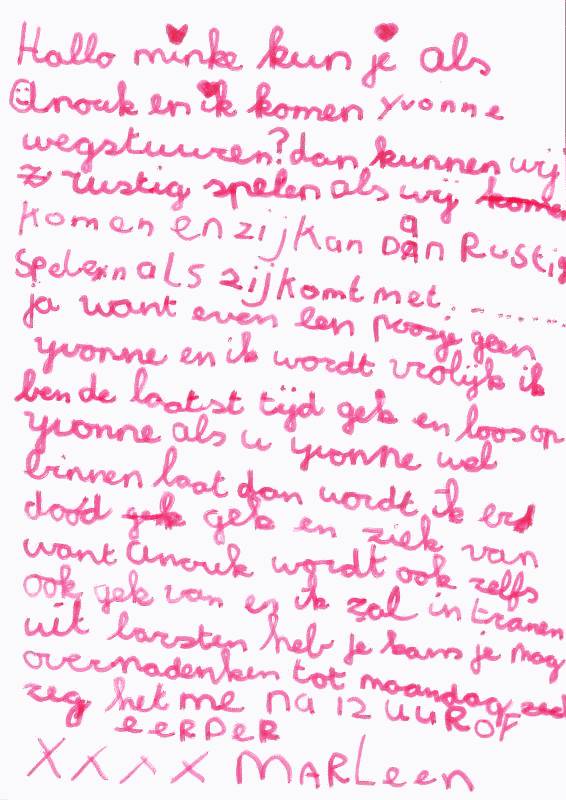 Hallo minke kun je als
Anouk en ik komen yvonne
wegstuuren? dan kunnen wij
rustig spelen als wij komen
komen en zij kan dan Rustig
Spelen als zij komt met ........
ja want even een poosje geen
yvonne en ik wordt vrolijk ik
ben de laatst tijd gek en loos op
yvonne als u yvonne wel
binnen laat dan wordt ik er
dood gek gek en ziek van
want Anouk wordt ook zelfs
ook gek van en ik zal in tranen
uit barsten heb je kans je mag
overnadenken tot maandag
zeg het me na 12 uuR OF
eeRDeR
XXXX MARLeen